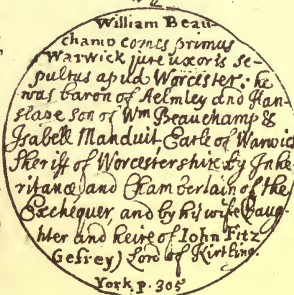 William Beau-
champ comes primus
Warwick jure uxoris se-
pultus apud Worcester: he
was baron of Aelmley and Han-
slape son of Wm Beauchamp &
Isabell Manduit, Earle of Warwic
Sheriff of Worcestershire by Inhe
ritance and Chamberlain of the
Exchequer, and by his wife Daug-
hter and heire of Iohn Fitz
Gefrey) Lord of Kirtling.
York p. 305